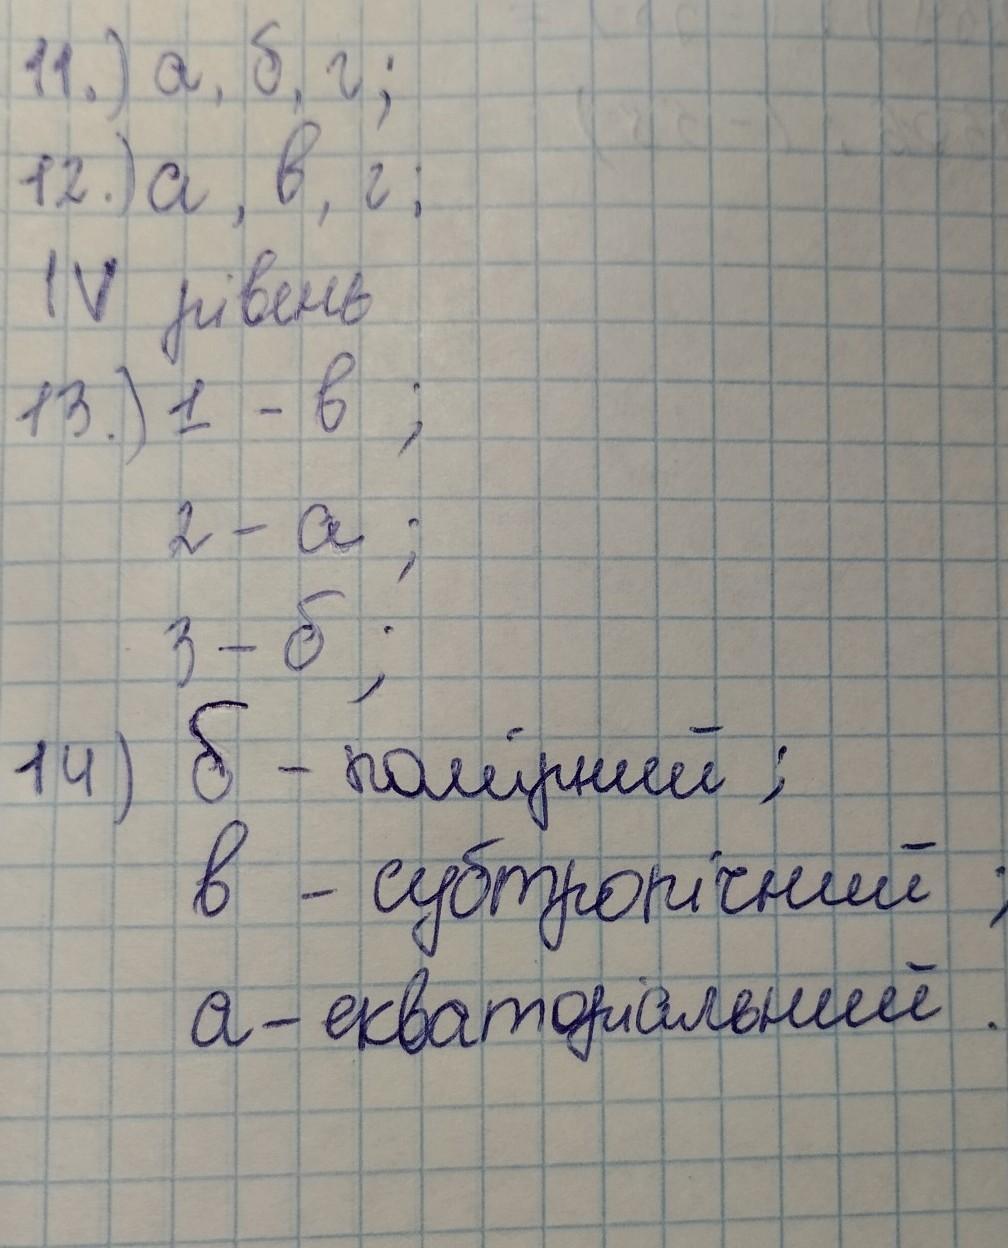 11.) а, б, г;
12.) а, в, г;
IV рівень
13.) 1 - в ;
2 - а ;
3 - б ;
14) б - помірний ;
в - субтропічний ;
а - екваторіальний .